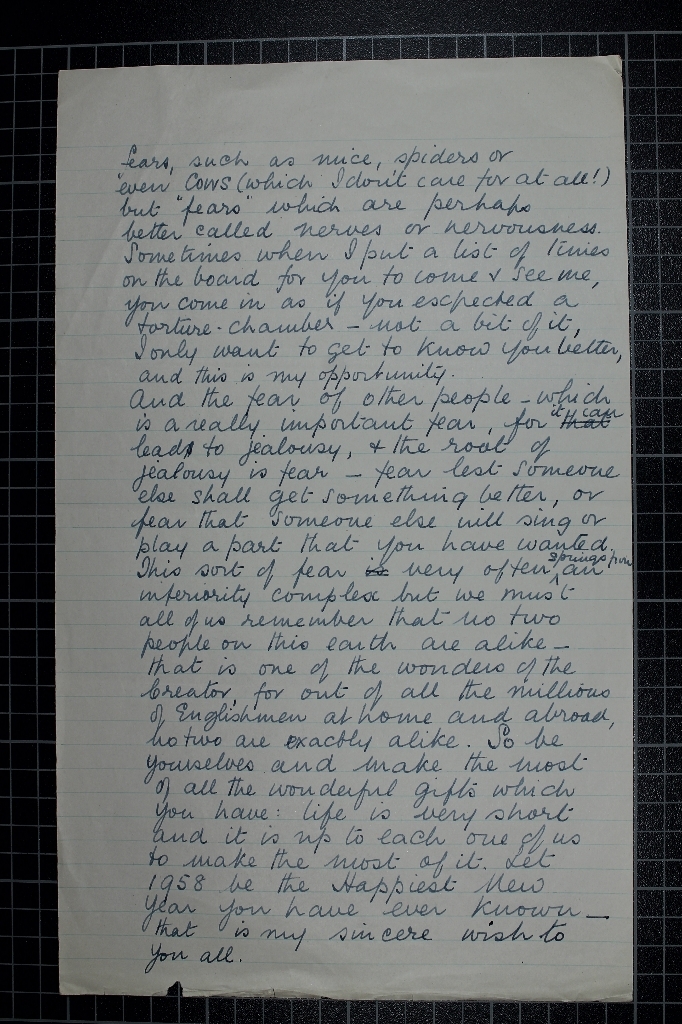 fears, such as mice, spiders or
"even cows (which I don't care for at all!)
but "fears" which are perhaps
better called nerves or nervousness.
Sometimes when I put a list of times
on the board for you to come & see me,
you come in as if you escpected a
torture-chamber – not a bit of it,
I only want to get to know you better,
and this is my opportunity.
And the fear of other people – which
is a really important fear, for it can that
leads to jealousy, & the root of
jealousy is fear – fear lest someone
else shall get something better, or
fear that someone else will sing or
play a part that you have wanted.
This sort of fear is very often springs from an
inferiority complex but we must
all of us remember that no two
people on this earth are alike –
that is one of the wonders of the
Creator, for out of all the millions
of Englishmen at home and abroad,
no two are exactly alike. So be
yourselves and make the most
of all the wonderful gifts which
you have: life is very short
and it is up to each one of us
to make the most of it. Let
1958 be the Happiest New
Year you have ever known –
that is my sincere wish to
you all.